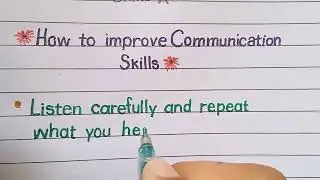 How to improve Communication
Skills.
Listen carefully and repeat
what you he